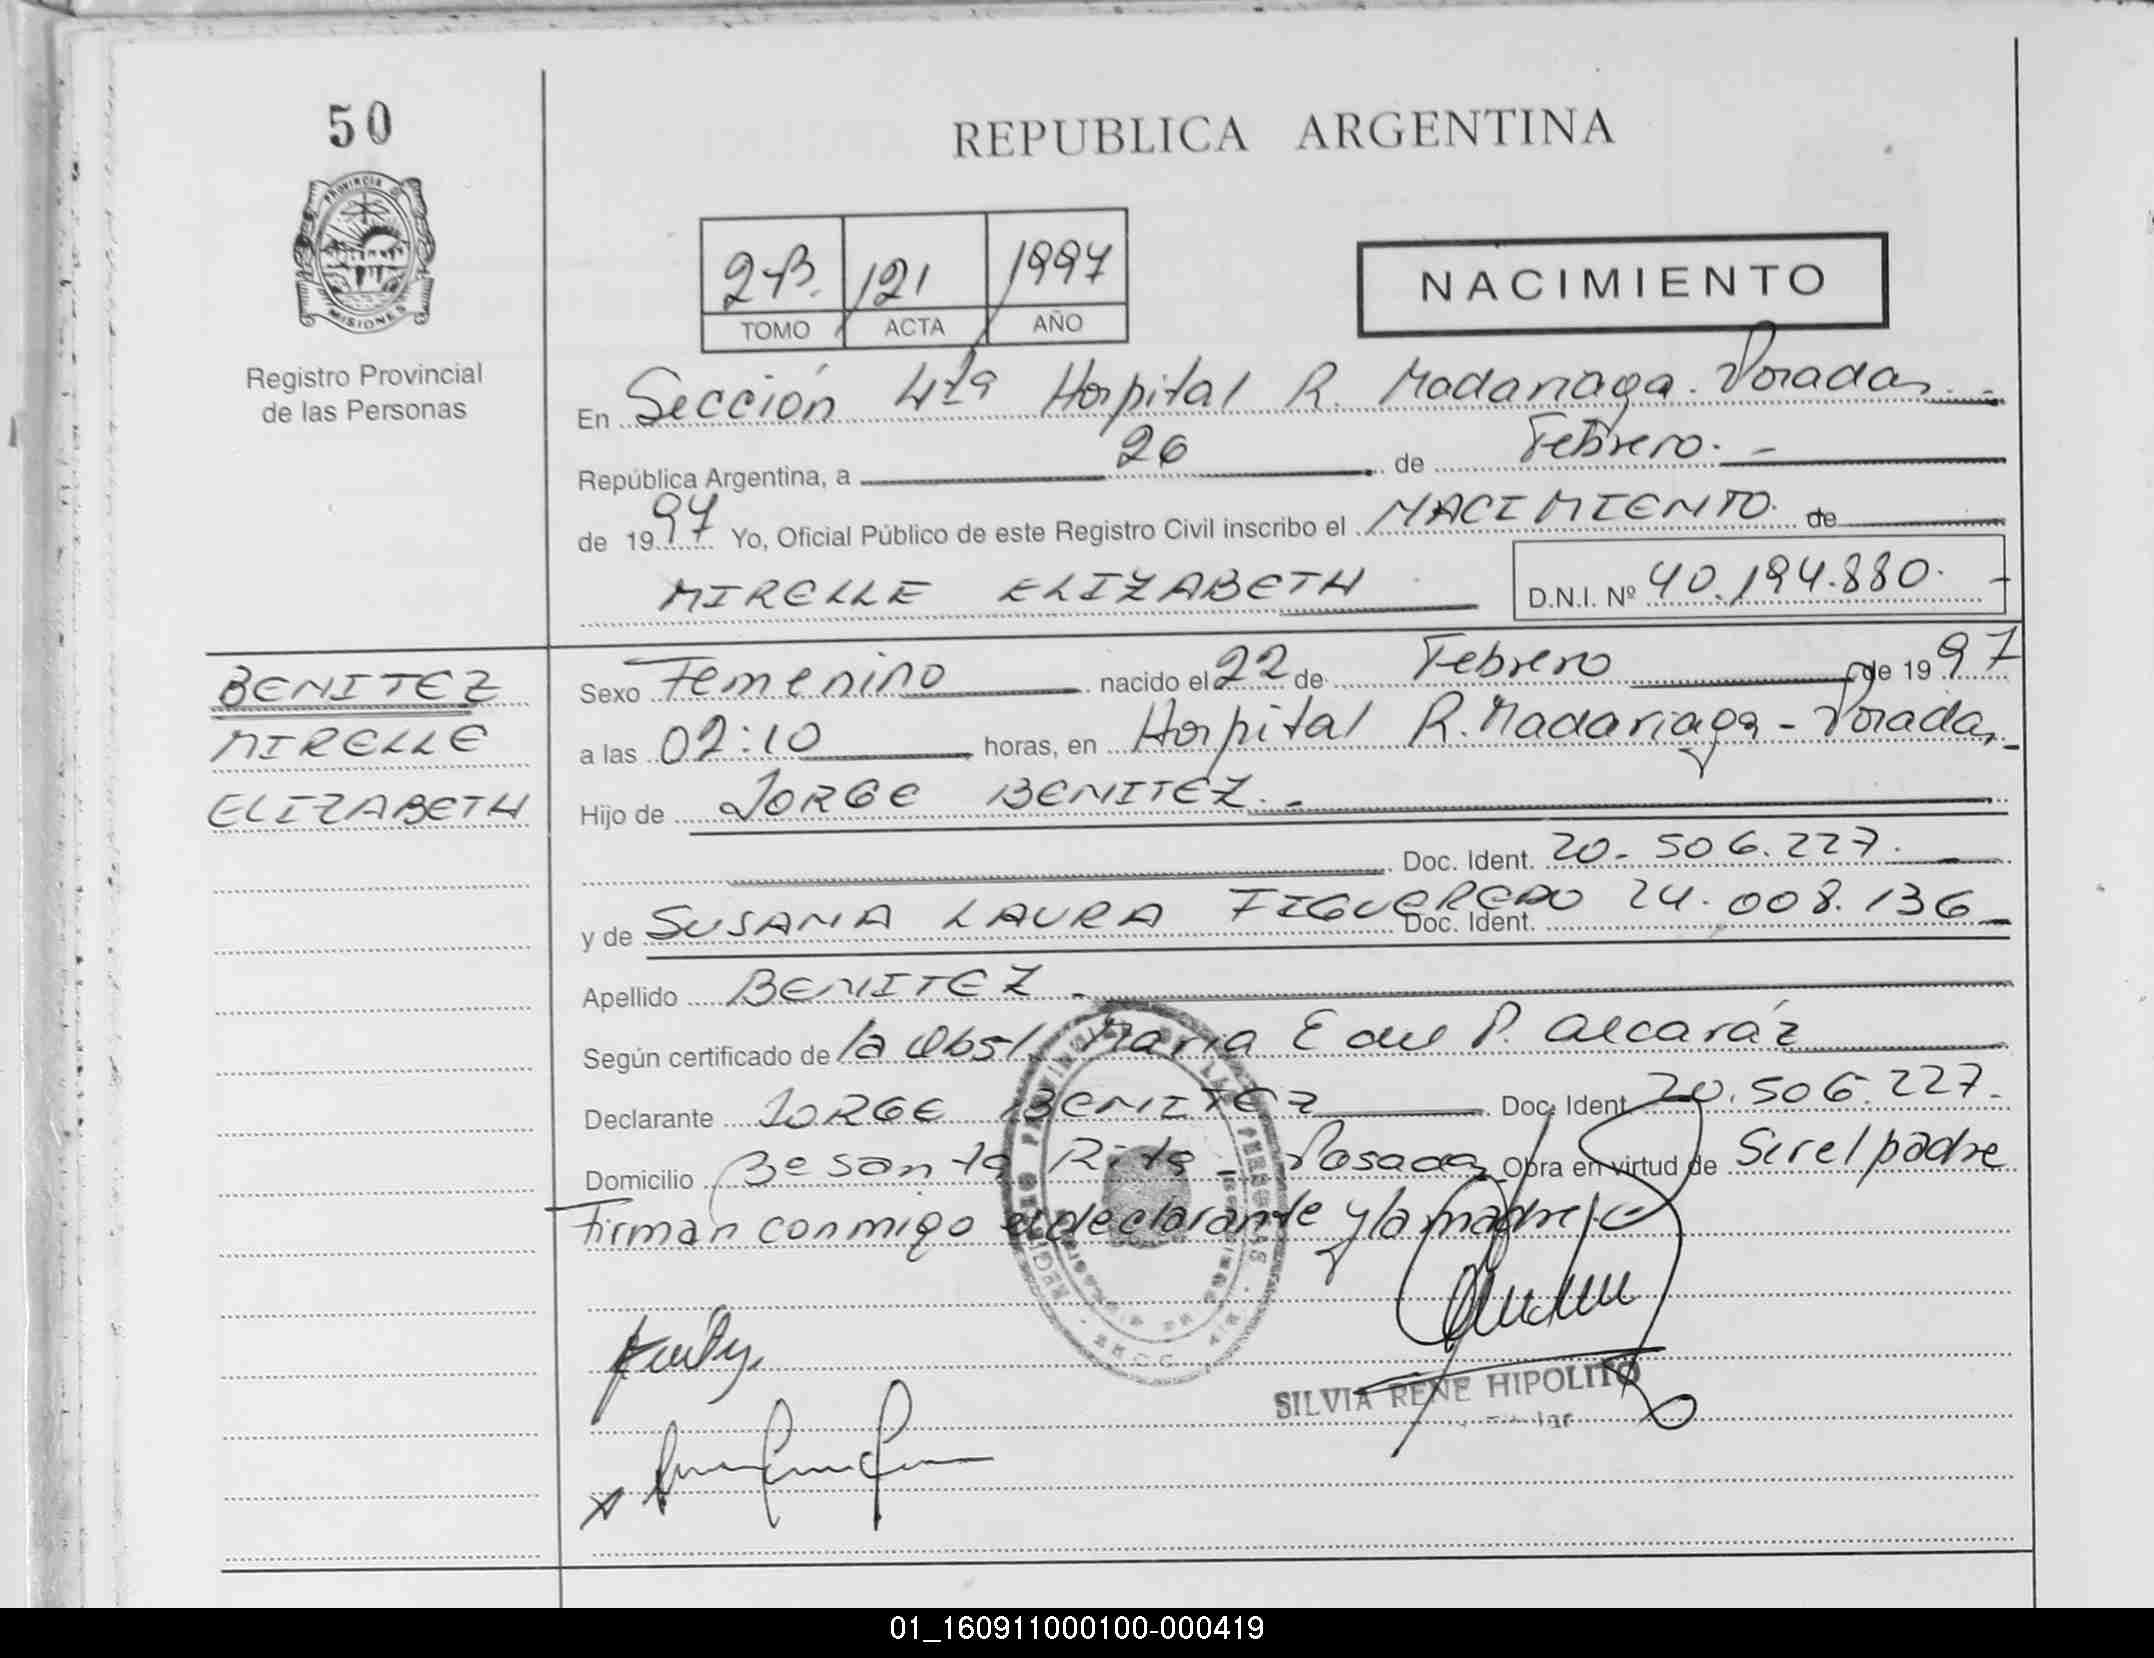 50
REPUBLICA ARGENTINA
PROVINCIA D
MISIONES
Registro Provincial
de las Personas
2-B. 121 1997
TOMO ACTA AÑO
NACIMIENTO
En Sección 4ta Hospital R. Madariaga. Posadas. -
República Argentina, a 26 de Febrero. -
de 1997 Yo, Oficial Público de este Registro Civil inscribo el NACIMIENTO. de
MIRELLE ELIZABETH D.N.I. Nº 40.194.880. -
BENITEZ
MIRELLE
ELIZABETH
Sexo Femenino nacido el 22 de Febrero de 1997
a las 02:10 horas, en Hospital R. Madariaga - Posadas -
Hijo de JORGE BENITEZ. -
Doc. Ident. 20.506.227. -
y de SUSANA LAURA FIGUEREDO Doc. Ident. 24.008.136 -
Apellido BENITEZ -
Según certificado de la Obst. Maria E del P. Alcaráz
Declarante JORGE BENITEZ Doc. Ident. 20.506.227.
Domicilio Bº Santa Rita - Posadas Obra en virtud de Ser el padre
Firman conmigo el declarante y la madre.
SILVIA RENE HIPOLITO
01_160911000100-000419